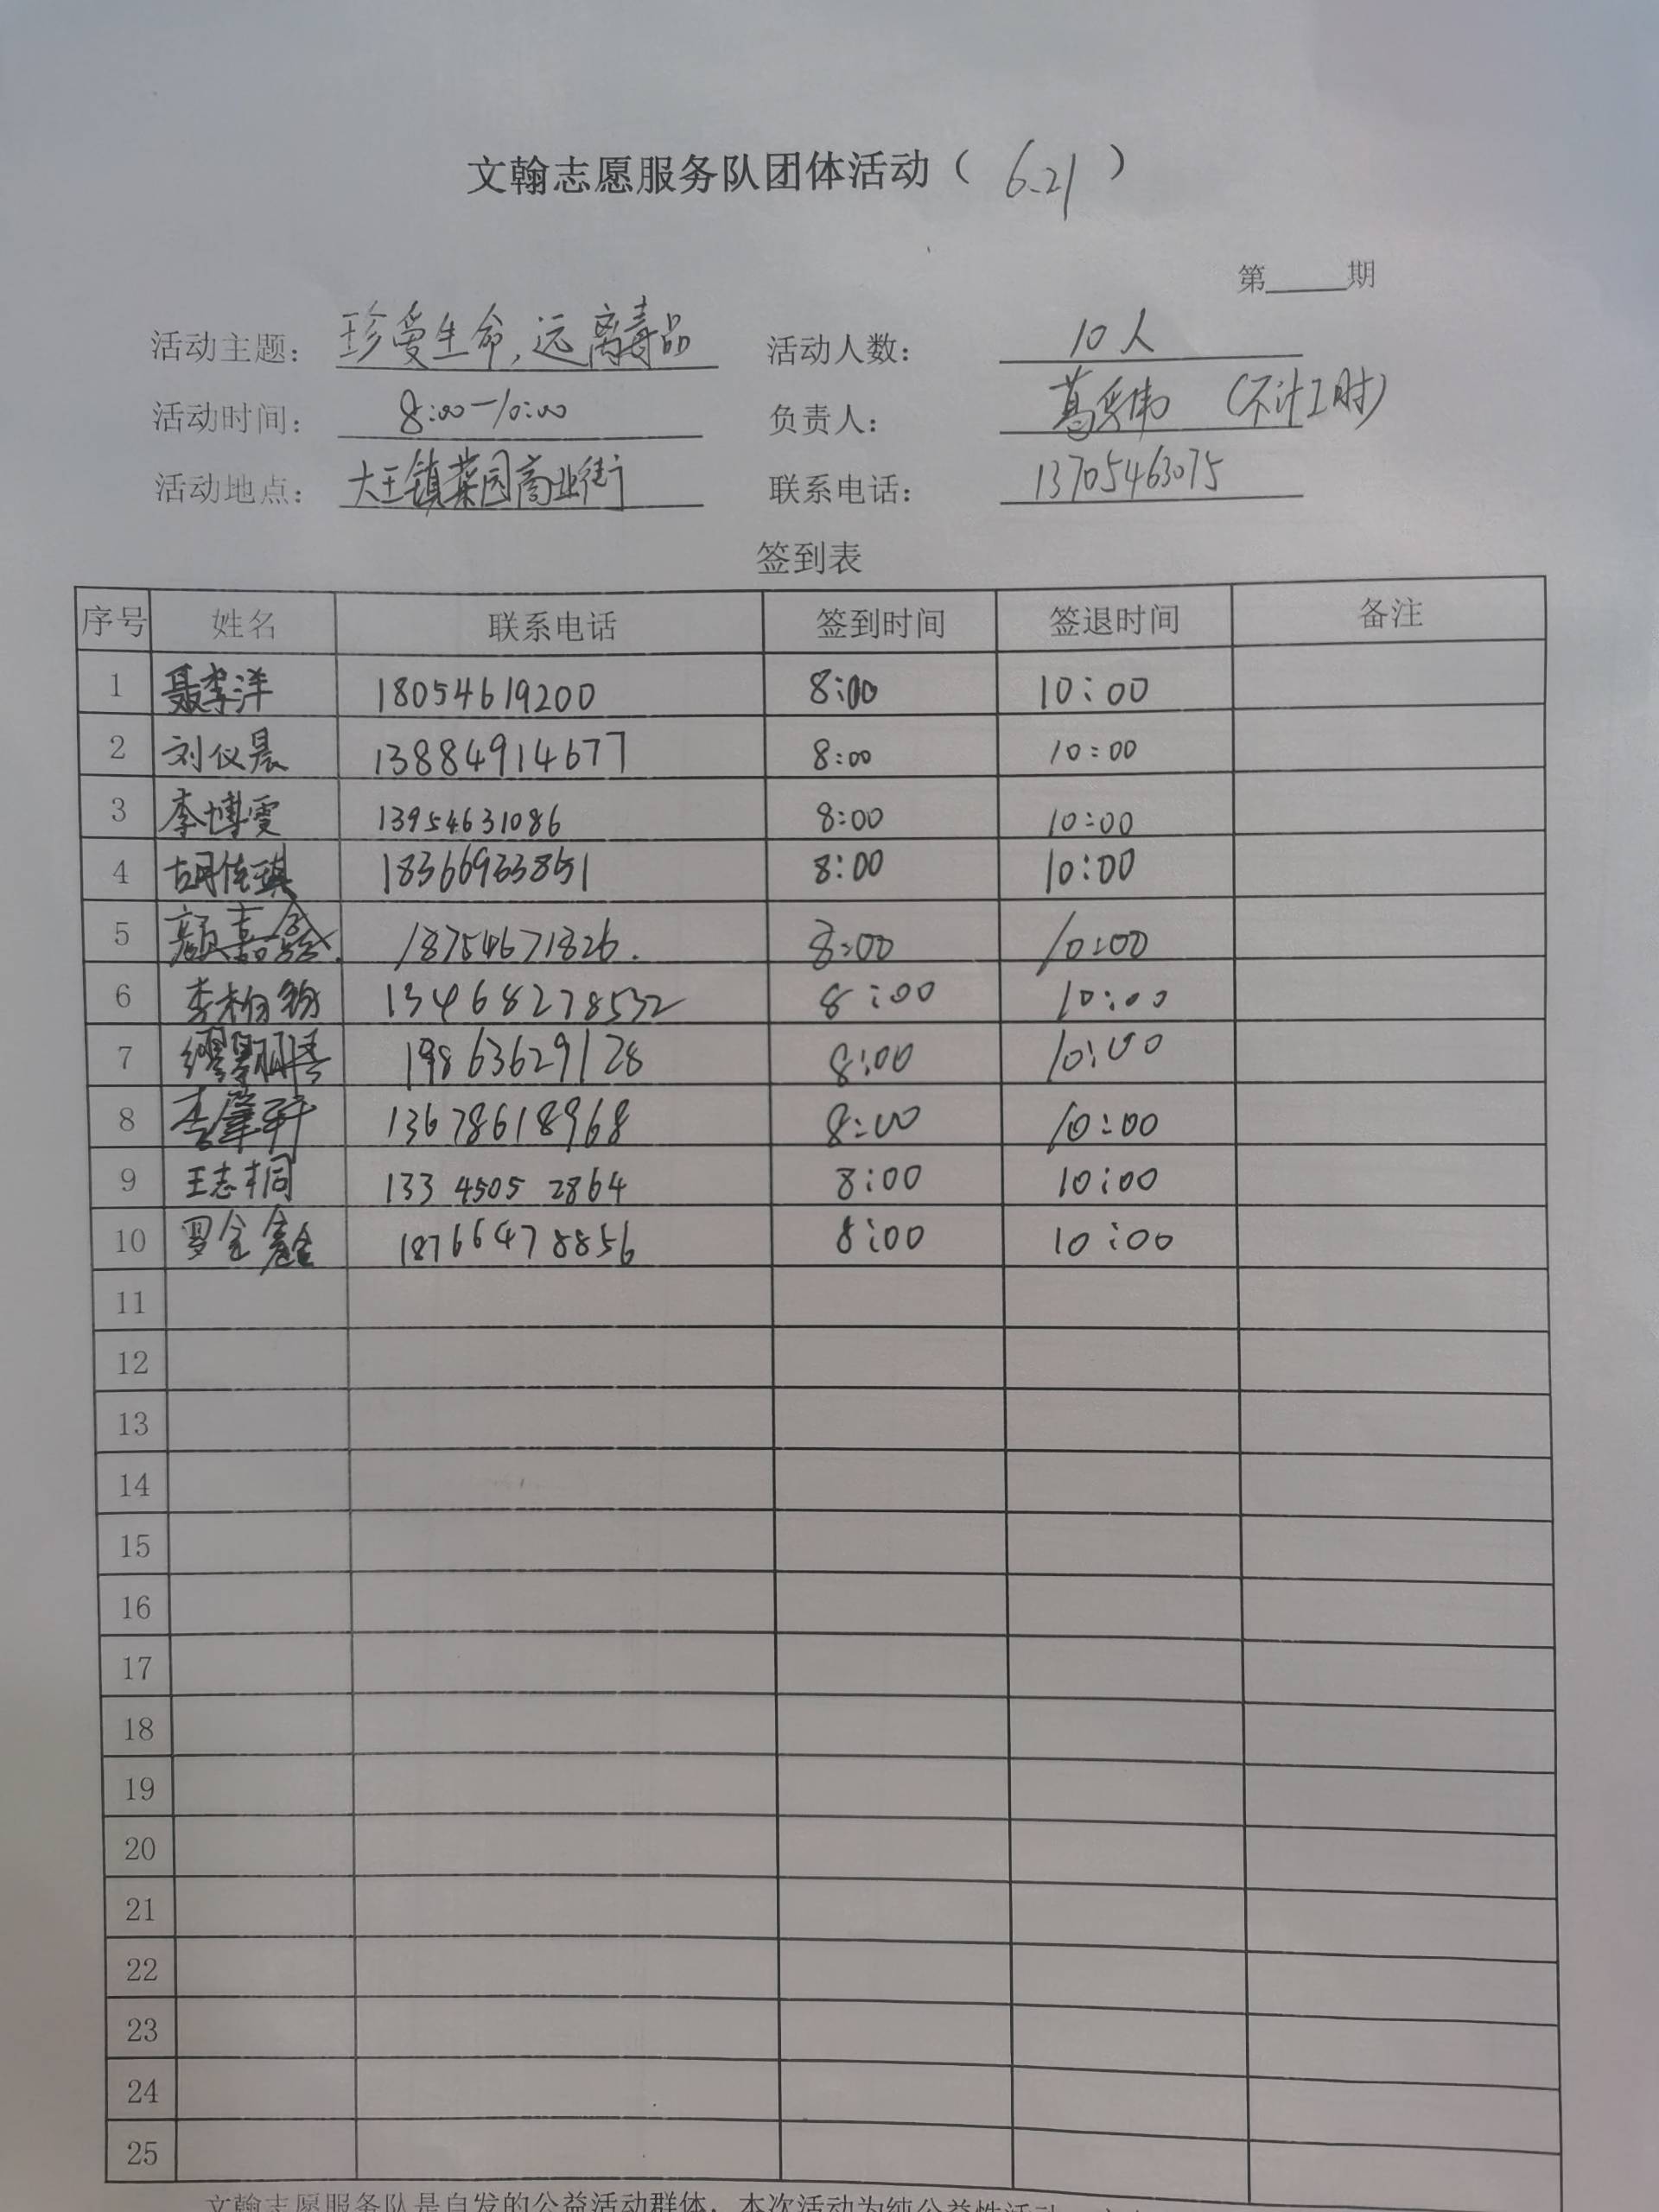 文翰志愿服务队团体活动（ 6.21 ）
第____期
活动主题： 珍爱生命，远离毒品 活动人数： 10人
活动时间： 8:00-10:00 负责人： 葛 伟 （不计工时）
活动地点： 大王镇菜园商业街 联系电话： 13705463075
签到表
序号 姓名 联系电话 签到时间 签退时间 备注
1 聂李洋 18054619200 8:00 10:00
2 刘仪晨 13884914677 8:00 10:00
3 李博雯 13954631086 8:00 10:00
4 胡佳琪 18366933851 8:00 10:00
5 颜嘉 18754671826. 8:00 10:00
6 李柏 13468278532 8:00 10:00
7 缪 19863629128 8:00 10:00
8 李肇轩 13678618968 8:00 10:00
9 王志桐 133 4505 2864 8:00 10:00
10 罗金鑫 18766478856 8:00 10:00
11
12
13
14
15
16
17
18
19
20
21
22
23
24
25
文翰志愿服务队是自发的公益活动群体，本次活动为纯公益性活动